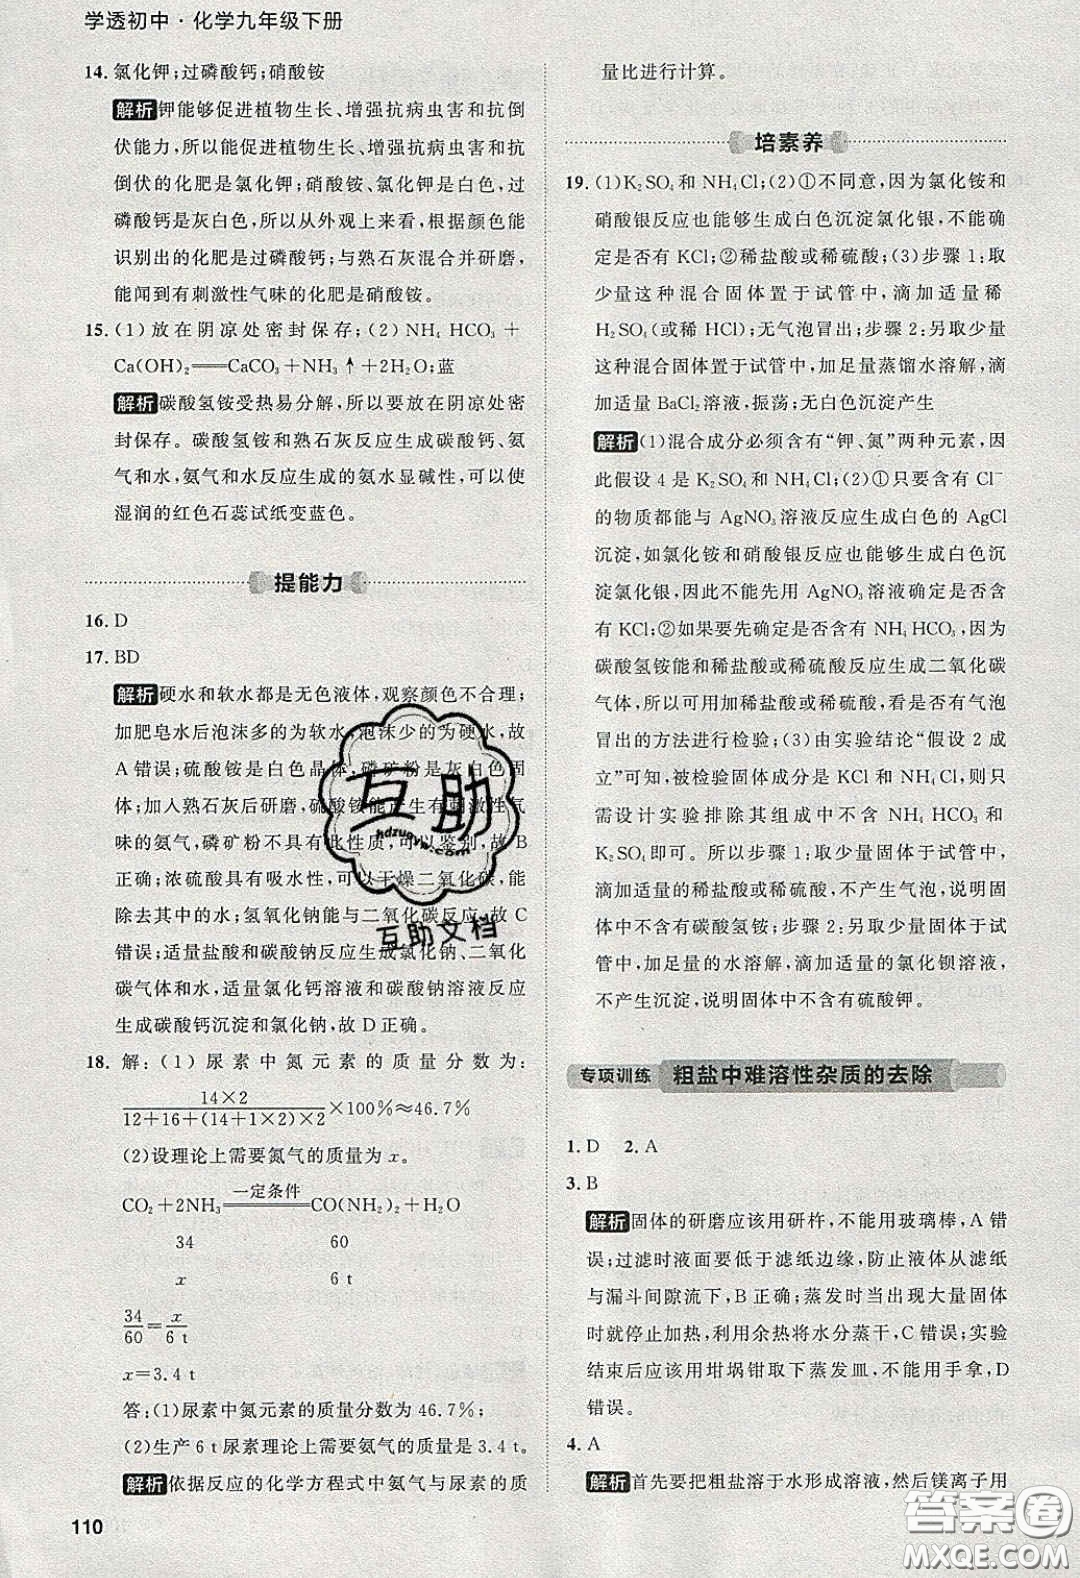 学透初中·化学九年级下册
14. 氯化钾；过磷酸钙；硝酸铵
解析 钾能够促进植物生长、增强抗病虫害和抗倒
伏能力，所以能促进植物生长、增强抗病虫害和抗
倒伏的化肥是氯化钾；硝酸铵、氯化钾是白色，过
磷酸钙是灰白色，所以从外观上来看，根据颜色能
识别出的化肥是过磷酸钙；与熟石灰混合并研磨，
能闻到有刺激性气味的化肥是硝酸铵。
15. (1)放在阴凉处密封保存；(2)NH₄HCO₃＋
Ca(OH)₂══CaCO₃＋NH₃↑＋2H₂O；蓝
解析 碳酸氢铵受热易分解，所以要放在阴凉处密
封保存。碳酸氢铵和熟石灰反应生成碳酸钙、氨
气和水，氨气和水反应生成的氨水显碱性，能使
湿润的红色石蕊试纸变蓝色。
提能力
16. D
17. BD
解析 硬水和软水都是无色液体，观察颜色不合理；
加肥皂水后泡沫多的为软水，泡沫少的为硬水，故
A错误；硫酸铵是白色晶体，磷矿粉是灰白色固
体，加入熟石灰后研磨，硫酸铵能产生有刺激性气
味的氨气，磷矿粉不具有此性质，可以鉴别，故B
正确；浓硫酸具有吸水性，可以干燥二氧化碳，能
除去其中的水；氢氧化钠能与二氧化碳反应，故C
错误；适量盐酸和碳酸钠反应生成氯化钠、二氧化
碳气体和水，适量氯化钙溶液和碳酸钠溶液反应
生成碳酸钙沉淀和氯化钠，故D正确。
18. 解：(1)尿素中氮元素的质量分数为：
14×2
12＋16＋(14＋1×2)×2 ×100%≈46.7%
(2)设理论上需要氨气的质量为x。
一定条件
CO₂＋2NH₃══CO(NH₂)₂＋H₂O
34 60
x 6 t
34/60＝x/6 t
x＝3.4 t
答：(1)尿素中氮元素的质量分数为46.7%；
(2)生产6 t尿素理论上需要氨气的质量是3.4 t。
解析 依据反应的化学方程式中氨气与尿素的质
110
量比进行计算。
培素养
19. (1)K₂SO₄和NH₄Cl；(2)①不同意，因为氯化铵和
硝酸银反应也能够生成白色沉淀氯化银，不能确
定是否有KCl；②稀盐酸或稀硫酸；(3)步骤1：取
少量这种混合固体置于试管中，滴加适量稀
H₂SO₄(或稀HCl)；无气泡冒出；步骤2：另取少量
这种混合固体置于试管中，加足量蒸馏水溶解，滴
加适量BaCl₂溶液，振荡；无白色沉淀产生
解析 (1)混合成分必须含有“钾、氮”两种元素，因
此假设4是K₂SO₄和NH₄Cl；(2)①只要含有Cl⁻
的物质都能与AgNO₃溶液反应生成白色的AgCl
沉淀，如氯化铵和硝酸银反应也能够生成白色沉
淀氯化银，不能根据滴加AgNO₃溶液确定是否含
有KCl；②如果要先确定是否含有NH₄HCO₃，因
碳酸氢铵能和稀盐酸或稀硫酸反应生成二氧化碳
气体，所以可用稀盐酸或稀硫酸，看是否有气泡
冒出的方法进行检验；(3)由实验结论“假设2成
立”可知，被检验固体成分是KCl和NH₄Cl，则只
需设计实验排除其组成中不含NH₄HCO₃和
K₂SO₄即可。所以步骤1：取少量固体于试管中，
滴加适量的稀盐酸或稀硫酸，不产生气泡，说明固
体中不含有碳酸氢铵；步骤2：另取少量固体于试
管中，加足量的水溶解，滴加适量的氯化钡溶液，
不产生沉淀，说明固体中不含有硫酸钾。
专项训练 粗盐中难溶性杂质的去除
1. D 2. A
3. B
解析 固体的研磨应该用研杵，不能用玻璃棒，A错
误；过滤时液面要低于滤纸边缘，防止液体从滤纸
与漏斗间隙流下，B正确；蒸发时当出现大量固体
时就停止加热，利用余热将水分蒸干，C错误；实验
结束后应该用坩埚钳取下蒸发皿，不能用手拿，D
错误。
4. A
解析 首先要把粗盐溶于水形成溶液，然后镁离子用
互助
hdzuoye.com
互助文档
答案圈
MXQE.COM